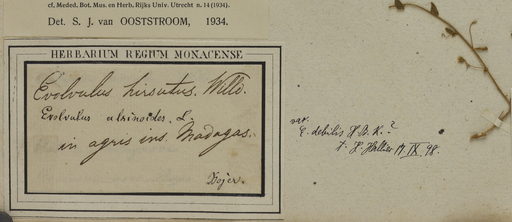 cf. Meded. Bot. Mus. en Herb. Rijks Univ. Utrecht n. 14 (1934).
Det. S. J. van OOSTSTROOM, 1934.
HERBARIUM REGIUM MONACENSE
Evolvulus hirsutus. Willd.
Evolvulus alsinoides. L.
in agris ins. Madagas.
Bojer.
var.
E. debilis H. B. K.?
t. H. Hallier 17 IX 98.